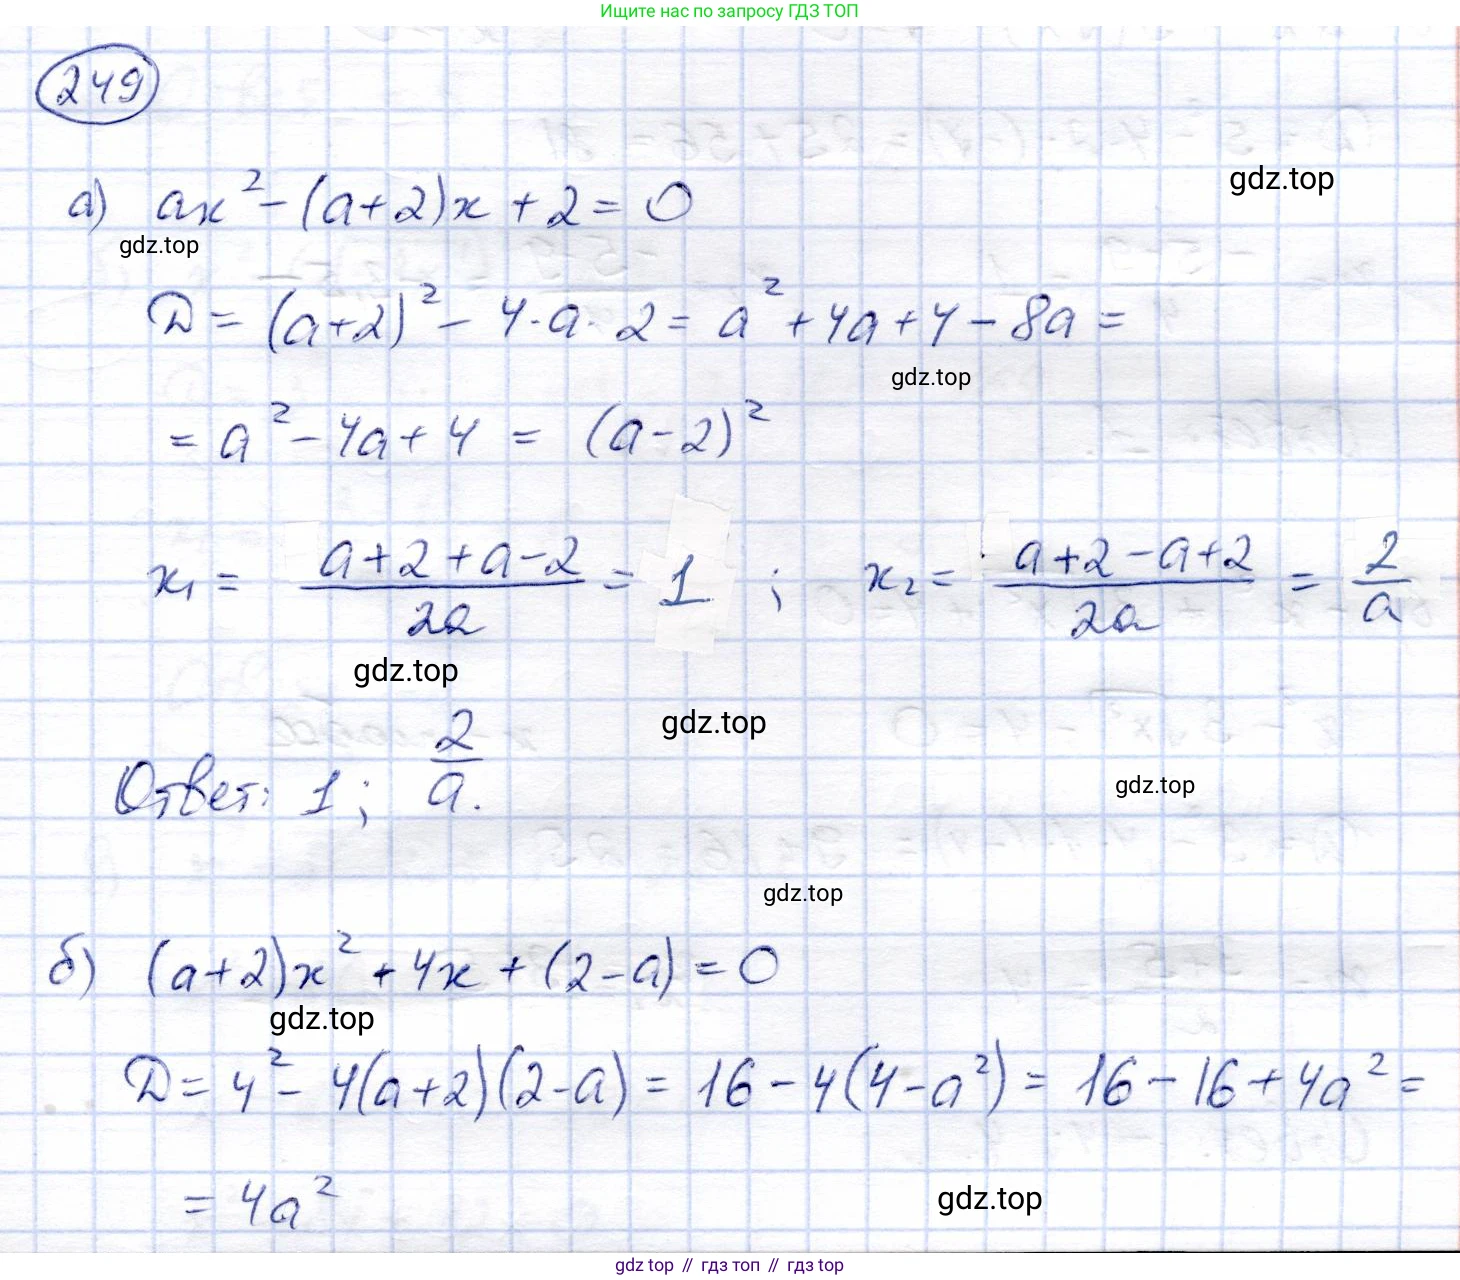 Ищите нас по запросу ГДЗ ТОП
249
а) ax² - (a+2)x + 2 = 0
gdz.top
gdz.top
D = (a+2)² - 4·a·2 = a² + 4a + 4 - 8a =
gdz.top
= a² - 4a + 4 = (a-2)²
x₁ = (a+2+a-2)/2a = 1 ; x₂ = (a+2-a+2)/2a = 2/a
gdz.top
gdz.top
Ответ: 1 ; 2/a.
gdz.top
gdz.top
б) (a+2)x² + 4x + (2-a) = 0
gdz.top
D = 4² - 4(a+2)(2-a) = 16 - 4(4-a²) = 16 - 16 + 4a² =
= 4a²
gdz.top
gdz top // гдз топ // гдз top